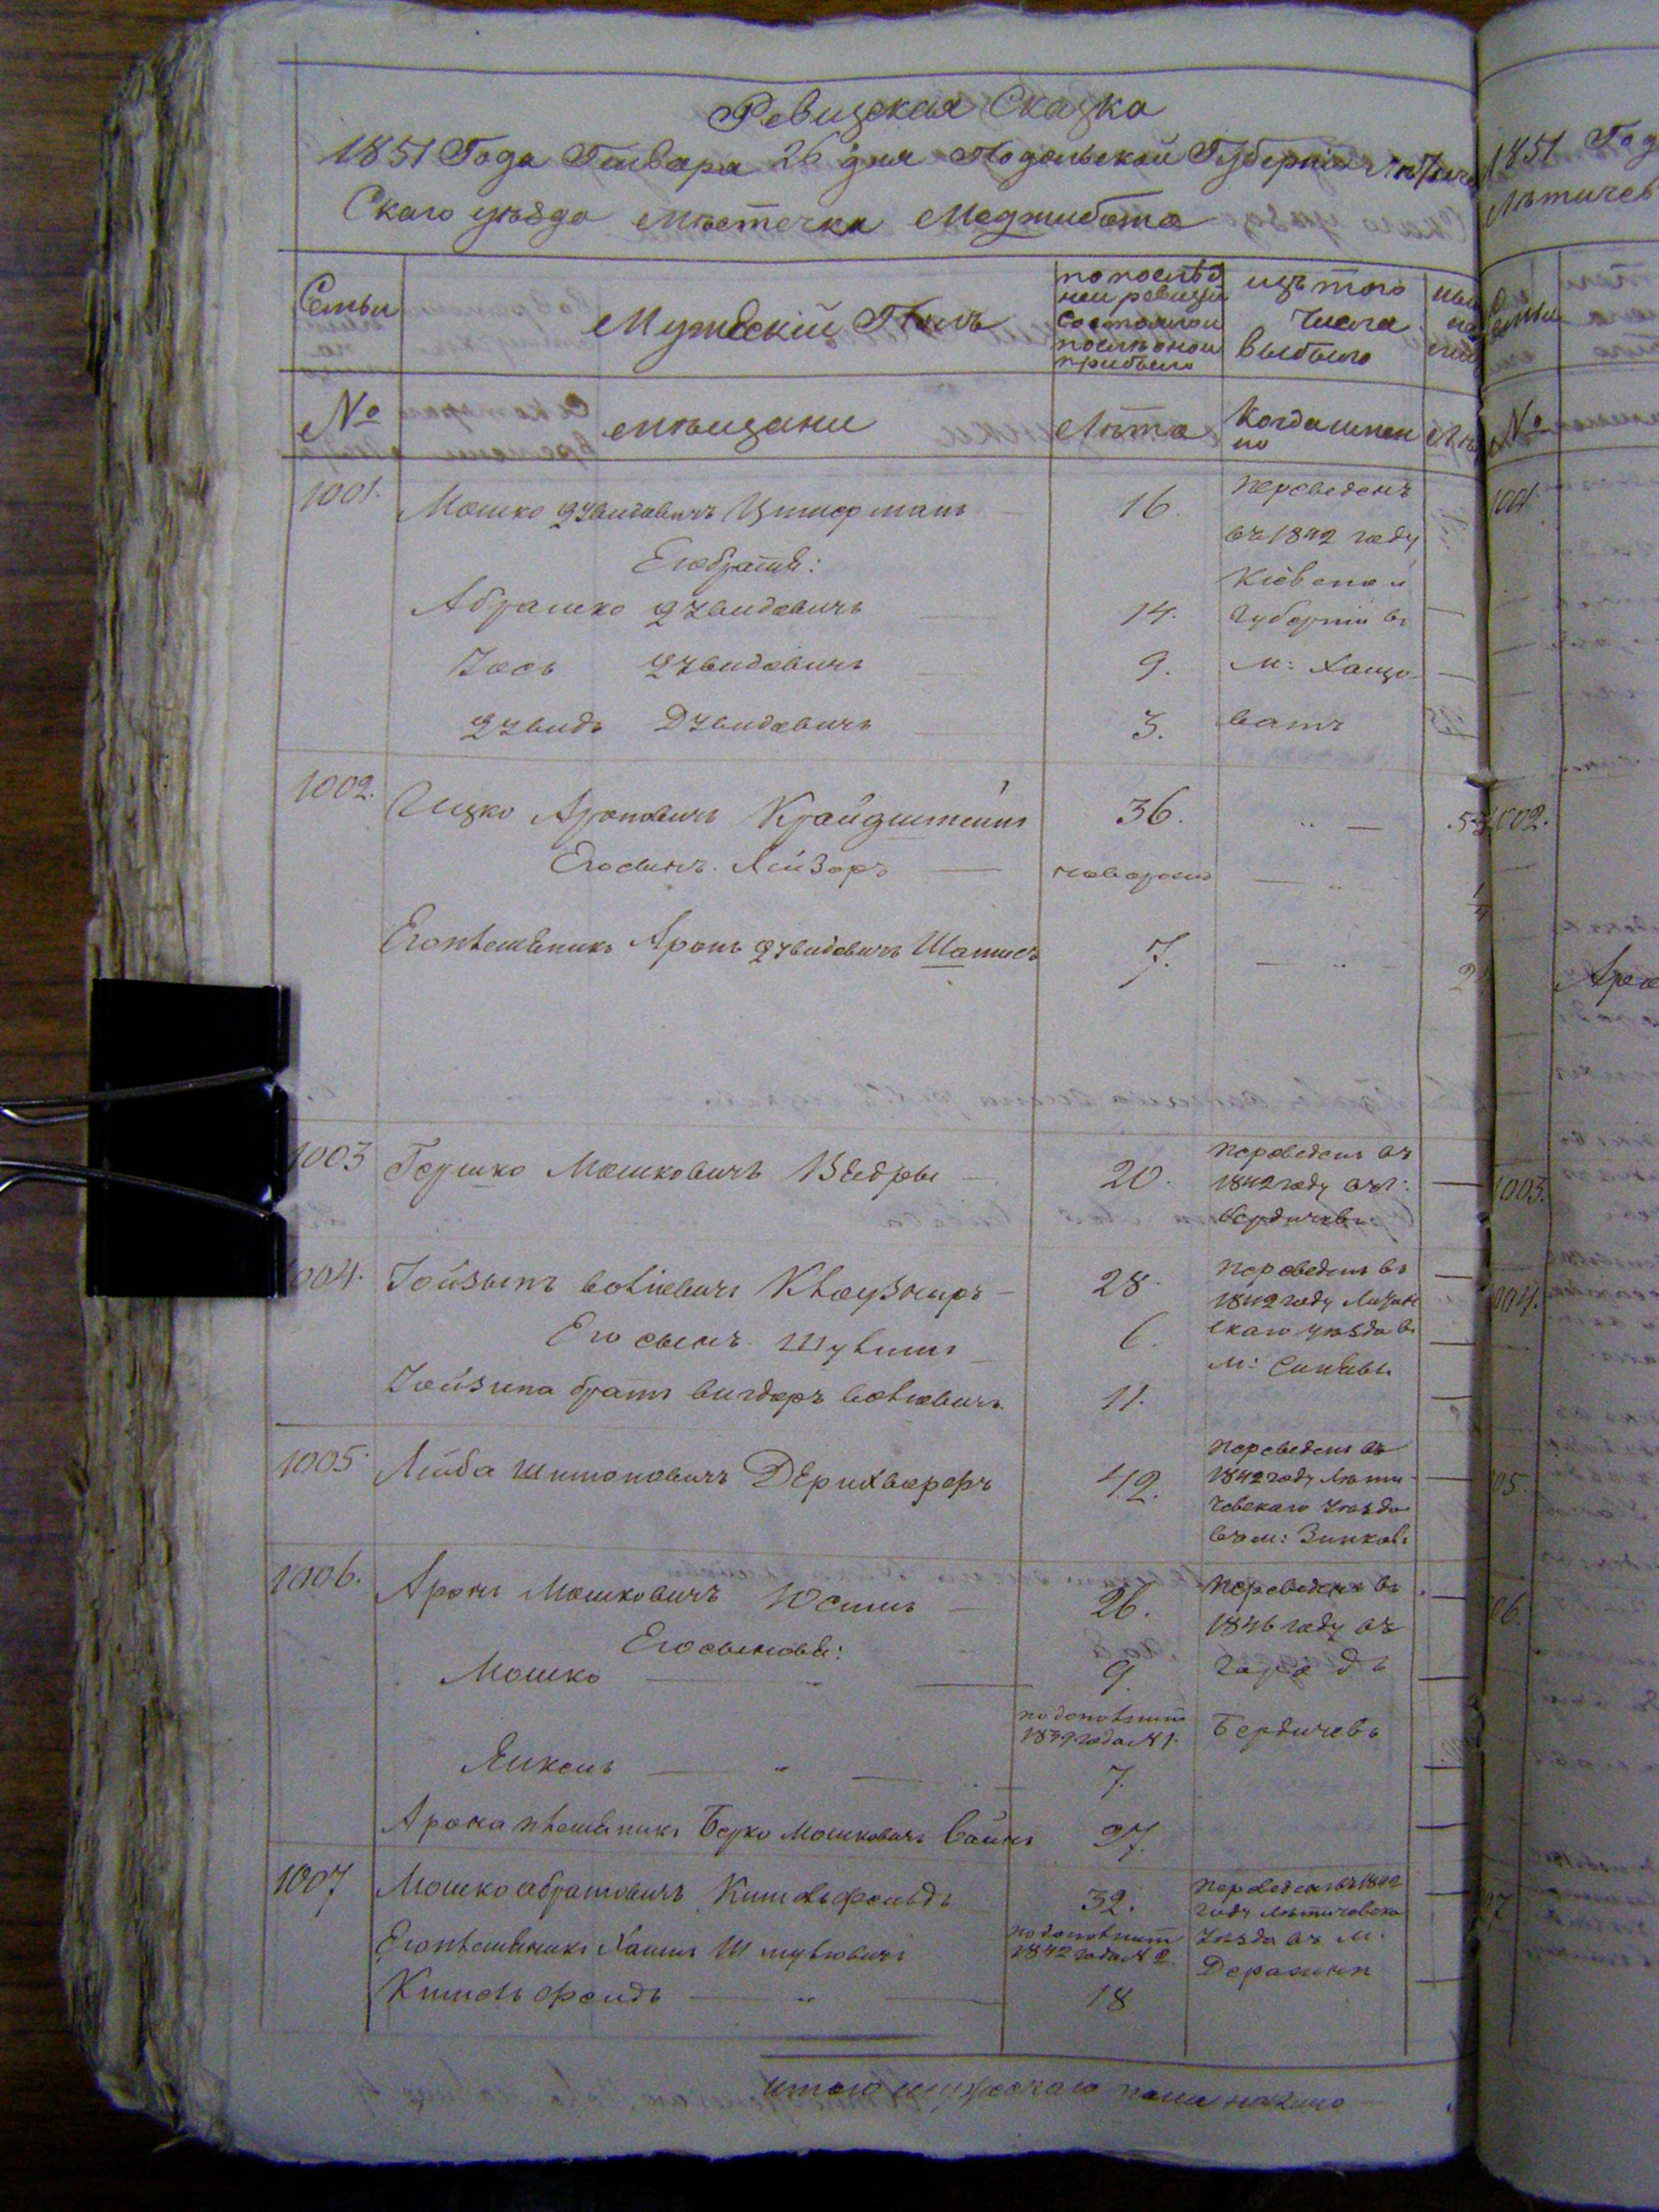 Ревизская Сказка
1851 Года Генваря 26 дня Подольской Губерніи Летичев
Скаго уѣзда мѣстечка Меджибожа
Семьи
Мужескій Полъ
по послѣд
ней ревизіи
состояло и
послѣ оной
прибыло
изъ того
числа
выбыло
№
мѣщане
Лѣта
Когда имен
но
1001.
Мошко Дувидовичъ
16.
переведенъ
въ 1842 году
Его братья:
Кіевской
Абрашко Дувидовичъ
14.
Губерніи въ
Іось Дувидовичъ
9.
м: Хащо
Дувидъ Дувидовичъ
3.
ватъ
1002.
Ицко Ароновичъ Крайдштейнъ
36.
Его сынъ Лейзоръ
новорожд
Его племянникъ Аронъ Дувидовичъ
7.
1003
Гершко Мошковичъ
20.
переведенъ въ
1842 году въ г:
Бердичевъ
1004.
Іойзыпъ Волковичъ Клаузнеръ
28.
переведенъ въ
1842 году
Его сынъ Шулимъ
6.
скаго уѣзда въ
м: Синявы
Іойзипа братъ Вигдоръ Волковичъ
11.
1005.
Лейба Шимоновичъ
42.
переведенъ въ
1842 году Лети
чевскаго уѣзда
въ м: Зиньковъ
1006.
Аронъ Мошковичъ
26.
переведенъ въ
1846 году въ
Его сыновья:
Мошко
9.
городъ
по дополнит
1839 года № 1.
Бердичевъ
Янкель
7.
Арона племянникъ Берко Мошковичъ Вайнъ
27.
1007
Мошко Абрамовичъ Кительфельдъ
32.
переведенъ въ 1842
году Летичевска
Его племянникъ Хаимъ Шмулевичъ
по дополнит
1842 года № 2.
уѣзда въ м.
Деражни
Кительфелдъ
18
итого мужескаго пола на лицо